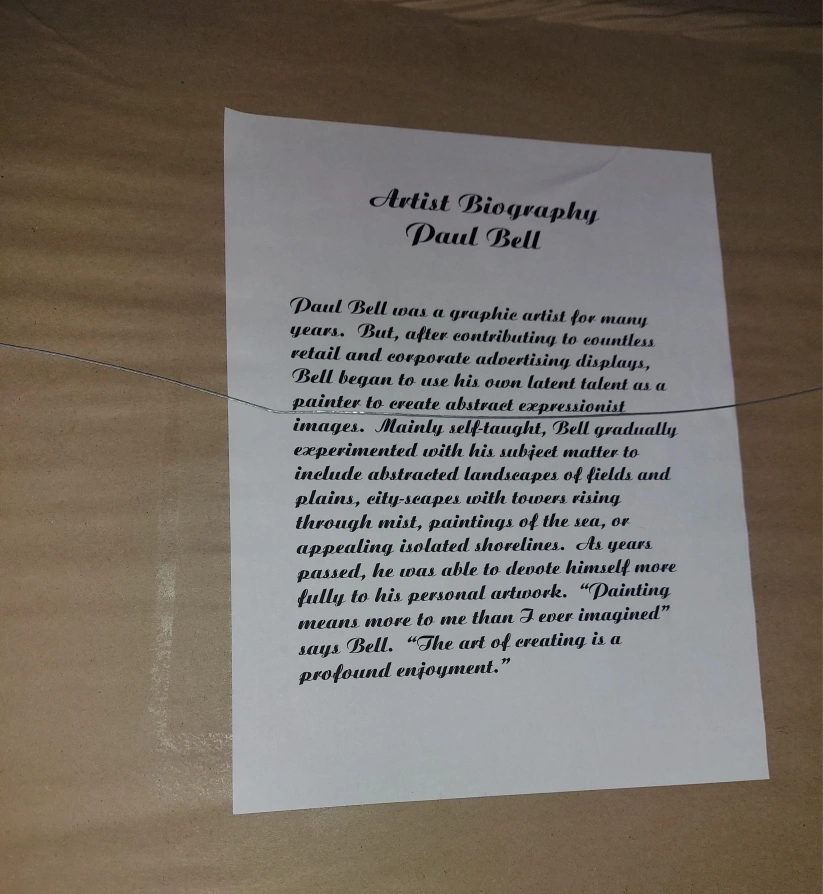 Artist Biography
Paul Bell
Paul Bell was a graphic artist for many
years.  But, after contributing to countless
retail and corporate advertising displays,
Bell began to use his own latent talent as a
painter to create abstract expressionist
images.  Mainly self-taught, Bell gradually
experimented with his subject matter to
include abstracted landscapes of fields and
plains, city-scapes with towers rising
through mist, paintings of the sea, or
appealing isolated shorelines.  As years
passed, he was able to devote himself more
fully to his personal artwork.  “Painting
means more to me than I ever imagined”
says Bell.  “The art of creating is a
profound enjoyment.”